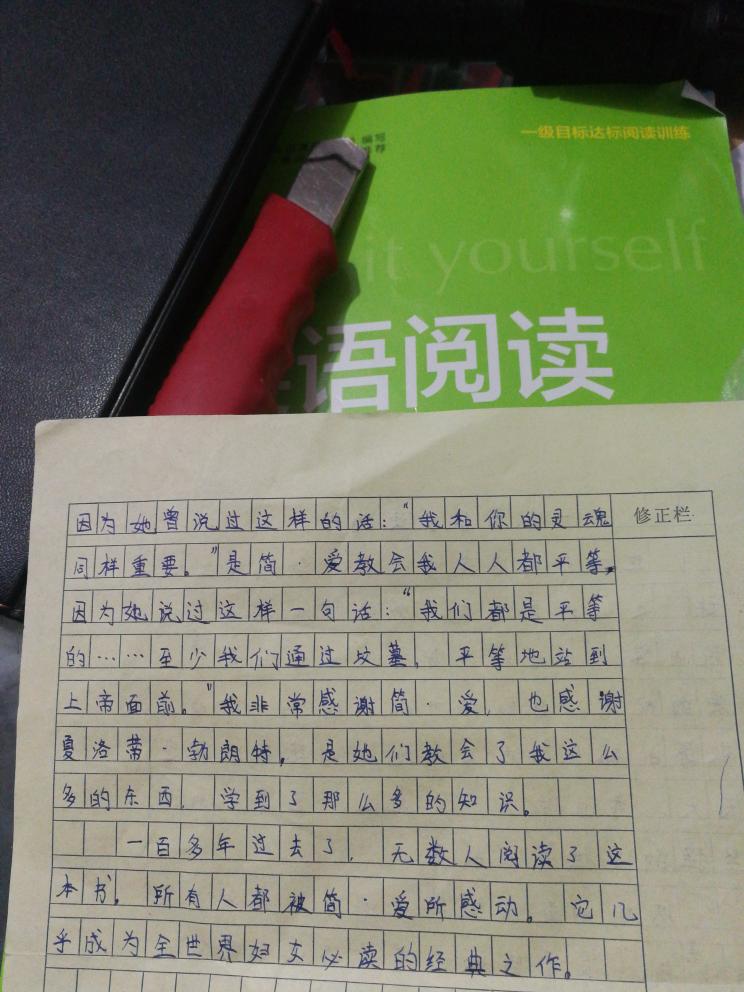 编写
荐
一级目标达标阅读训练
it yourself
语阅读
修正栏
因为她曾说过这样的话：“我和你的灵魂
同样重要。”是简·爱教会我人人都平等，
因为她说过这样一句话：“我们都是平等
的……至少我们通过坟墓，平等地站到
上帝面前。”我非常感谢简·爱，也感谢
夏洛蒂·勃朗特，是她们教会了我这么
多的东西，学到了那么多的知识。
一百多年过去了，无数人阅读了这
本书。所有人都被简·爱所感动。它几
乎成为全世界妇女必读的经典之作。